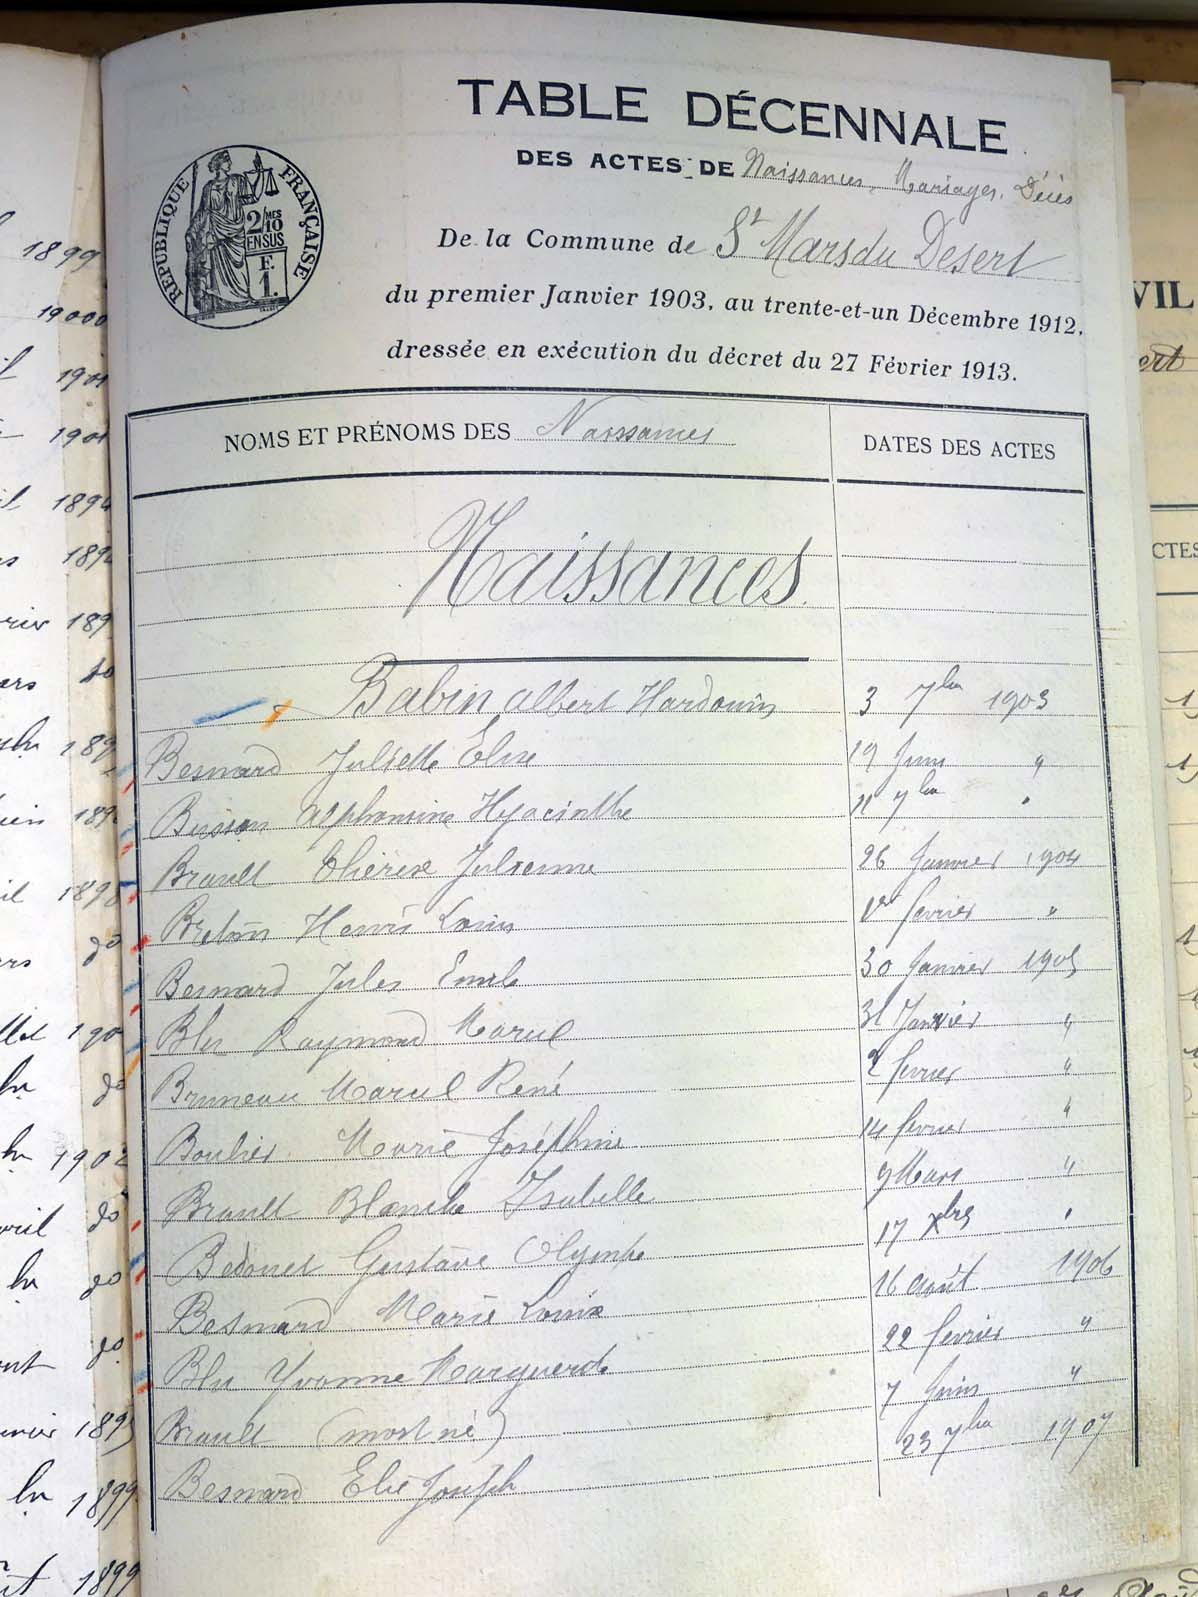 TABLE DÉCENNALE
DES ACTES DE Naissances, Mariages, Décès
RÉPUBLIQUE FRANÇAISE
2/10 MES
EN SUS
F.
1.
De la Commune de St Mars du Desert
du premier Janvier 1903, au trente-et-un Décembre 1912,
dressée en exécution du décret du 27 Février 1913.
NOMS ET PRÉNOMS DES Naissances DATES DES ACTES
Naissances.
Babin Albert Hardouin 3 7bre 1903
Besnard Juliette Elise 19 Juin "
Buisson Alphonsine Hyacinthe 11 7bre "
Brault Thérèse Julienne 26 Janvier 1904
Breton Henri Louis 1er fevrier "
Besnard Jules Emile 30 Janvier 1905
Blu Raymond Marcel 31 Janvier "
Bruneau Marcel René 2 fevrier "
Boulier Marie Joséphine 14 fevrier "
Brault Blanche Isabelle 9 Mars "
Bedouet Gustave Olympe 17 Xbre "
Besnard Marie Louise 16 août 1906
Blu Yvonne Marguerite 22 fevrier "
Brault (mort né) 7 Juin "
Besnard Elie Joseph 23 7bre 1907
1899
19000
1901
1901
1894
vrier 189
1898
do
1902
do
do
do
1895
1899
1899
VIL
ert
CTES